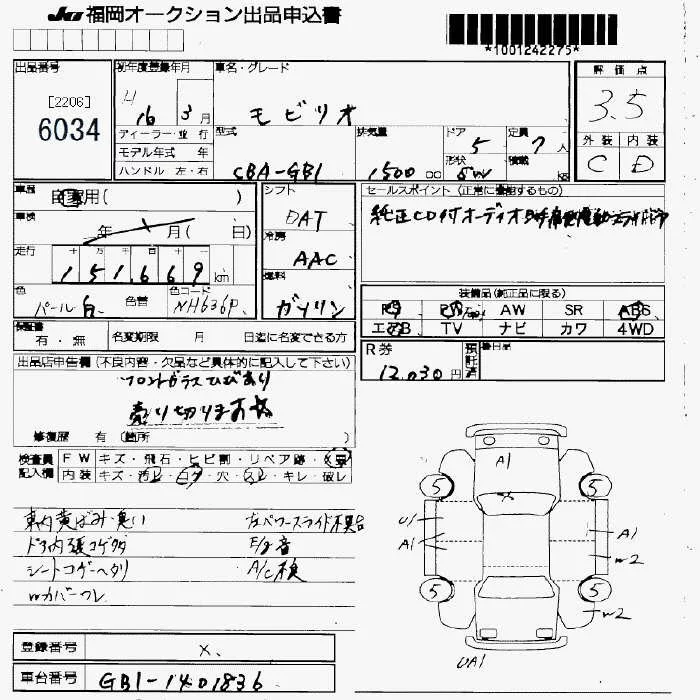 JU 福岡オークション出品申込書
*1001242275*
出品番号
[2206]
6034
初年度登録年月
H 16 3 月
ディーラー・並行
モデル年式 年
ハンドル 左・右
車名・グレード
モビリオ
型式
CBA-GB1
排気量
1500 CC
ドア
5
形状
5W
定員
7 人
積載
kg
評価点
3.5
外装 内装
C D
車歴
自家用( )
車検
年 月( 日)
走行
十 万 千 百 十 一
151669 km
色
パール白
色替
色コード
NH636P
シフト
DAT
冷房
AAC
燃料
ガソリン
セールスポイント(正常に機能するもの)
純正CD付オーディオ
装備品(純正品に限る)
PS PW AW SR ABS
エアB TV ナビ カワ 4WD
保証書
有・無
名変期限 月 日迄に名変できる方
R券
12.030 円
預託済
後日品
出品店申告欄(不良内容・欠品など具体的に記入して下さい)
フロントガラスひびあり
売り切ります
修復歴 有(箇所 )
検査員記入欄
FW キズ・飛石・ヒビ割・リペア跡・×要
内装 キズ・汚レ・コゲ・穴・スレ・キレ・破レ
車内黄ばみ・臭い
左パワースライド不具合
ドア内張コゲ
E/g音
シートコゲ・ヘタリ
A/C検
A1
×
5 5
U1
A1
A1
W2
5 5
W2
UA1
登録番号
×.
車台番号
GB1-1401836